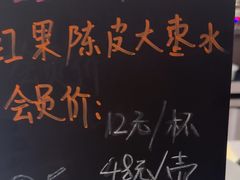 红果陈皮大枣水
会员价:
12元/杯
48元/壶